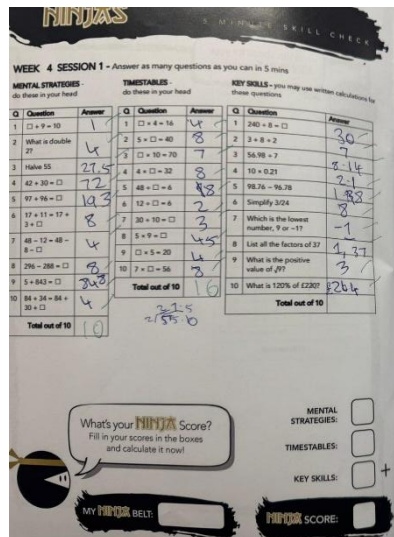 NINJAS
5 MINUTE SKILL CHECK
WEEK 4 SESSION 1 - Answer as many questions as you can in 5 mins
MENTAL STRATEGIES -
do these in your head
Q Question Answer
1 □ + 9 = 10 1
2 What is double 2? 4
3 Halve 55 27.5
4 42 + 30 = □ 72
5 97 + 96 = □ 193
6 17 + 11 = 17 + 3 + □ 8
7 48 - 12 = 48 - 8 - □ 4
8 296 - 288 = □ 8
9 5 + 843 = □ 848
10 84 + 34 = 84 + 30 + □ 4
Total out of 10 10
TIMESTABLES -
do these in your head
Q Question Answer
1 □ × 4 = 16 4
2 5 × □ = 40 8
3 □ × 10 = 70 7
4 4 × □ = 32 8
5 48 ÷ □ = 6 8
6 12 ÷ □ = 6 2
7 30 ÷ 10 = □ 3
8 5 × 9 = □ 45
9 □ × 5 = 20 4
10 7 × □ = 56 8
Total out of 10 10
2 7. 5
2 55.0
KEY SKILLS - you may use written calculations for
these questions
Q Question Answer
1 240 ÷ 8 = □ 30
2 3 + 8 ÷ 2 7
3 56.98 ÷ 7 8.14
4 10 × 0.21 2.1
5 98.76 - 96.78 1.98
6 Simplify 3/24 8
7 Which is the lowest number, 9 or -1? -1
8 List all the factors of 37 1, 37
9 What is the positive value of √9? 3
10 What is 120% of £220? £264
Total out of 10
What's your NINJA Score?
Fill in your scores in the boxes
and calculate it now!
MENTAL
STRATEGIES:
TIMESTABLES:
KEY SKILLS:
+
MY NINJA BELT:
NINJA SCORE: